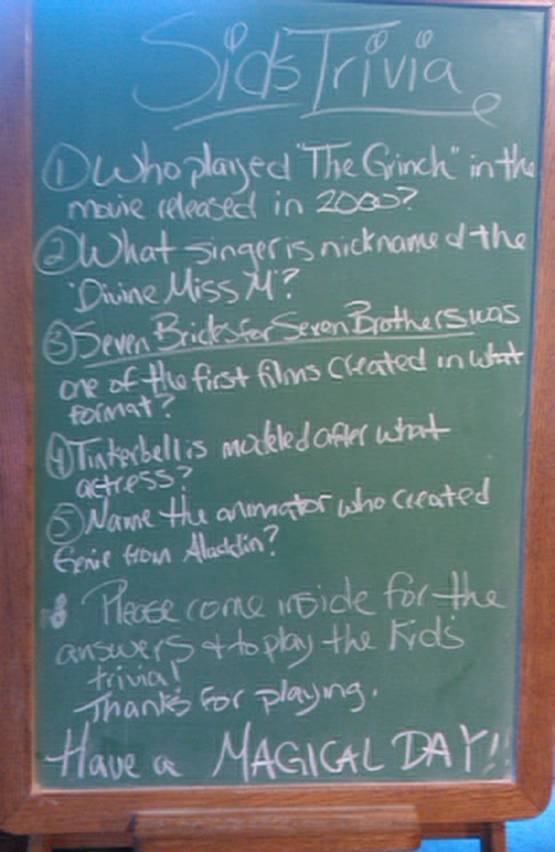 Sids Trivia
① Who played "The Grinch" in the
movie released in 2000?
② What singer is nicknamed the
"Divine Miss M"?
③ Seven Brides for Seven Brothers was
one of the first films created in what
format?
④ Tinkerbell is modeled after what
actress?
⑤ Name the animator who created
Genie from Aladdin?
Please come inside for the
answers + to play the Kid's
trivia!
Thanks for playing.
Have a MAGICAL DAY!!